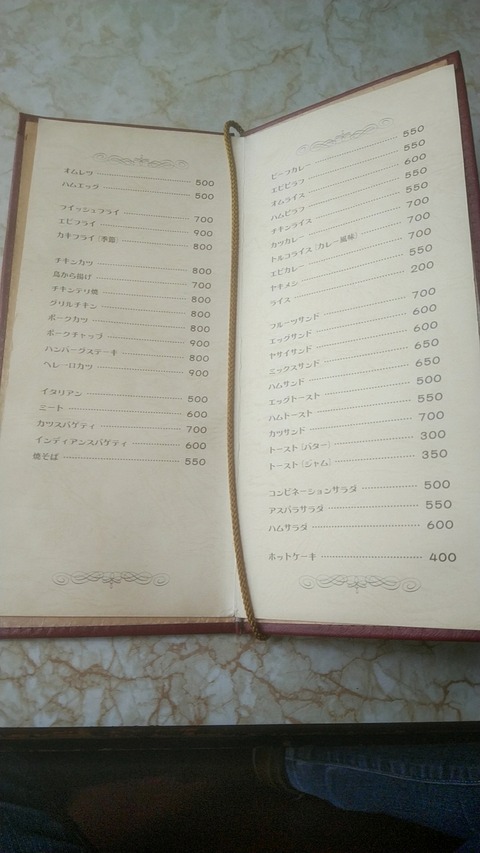 オムレツ 500
ハムエッグ 500
フイッシュフライ 700
エビフライ 900
カキフライ(季節) 800
チキンカツ 800
鳥から揚げ 700
チキンテリ焼 800
グリルチキン 800
ポークカツ 800
ポークチャップ 900
ハンバーグステーキ 800
ヘレ一口カツ 900
イタリアン 500
ミート 600
カツスパゲティ 700
インディアンスパゲティ 600
焼そば 550
ビーフカレー 550
エビピラフ 550
オムライス 600
ハムピラフ 550
チキンライス 550
カツカレー 700
トルコライス(カレー風味) 700
エビカレー 700
ヤキメシ 550
ライス 200
フルーツサンド 700
エッグサンド 600
ヤサイサンド 600
ミックスサンド 650
ハムサンド 650
エッグトースト 500
ハムトースト 550
カツサンド 700
トースト(バター) 300
トースト(ジャム) 350
コンビネーションサラダ 500
アスパラサラダ 550
ハムサラダ 600
ホットケーキ 400